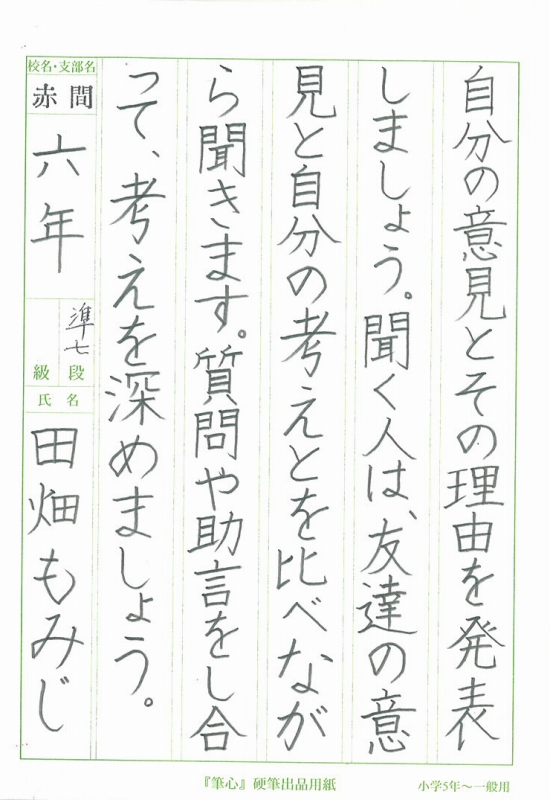 自分の意見とその理由を発表
しましょう。聞く人は、友達の意
見と自分の考えとを比べなが
ら聞きます。質問や助言をし合
って、考えを深めましょう。
校名・支部名
赤間
六年
準七
級 段
氏名
田畑もみじ
『筆心』硬筆出品用紙
小学5年〜一般用